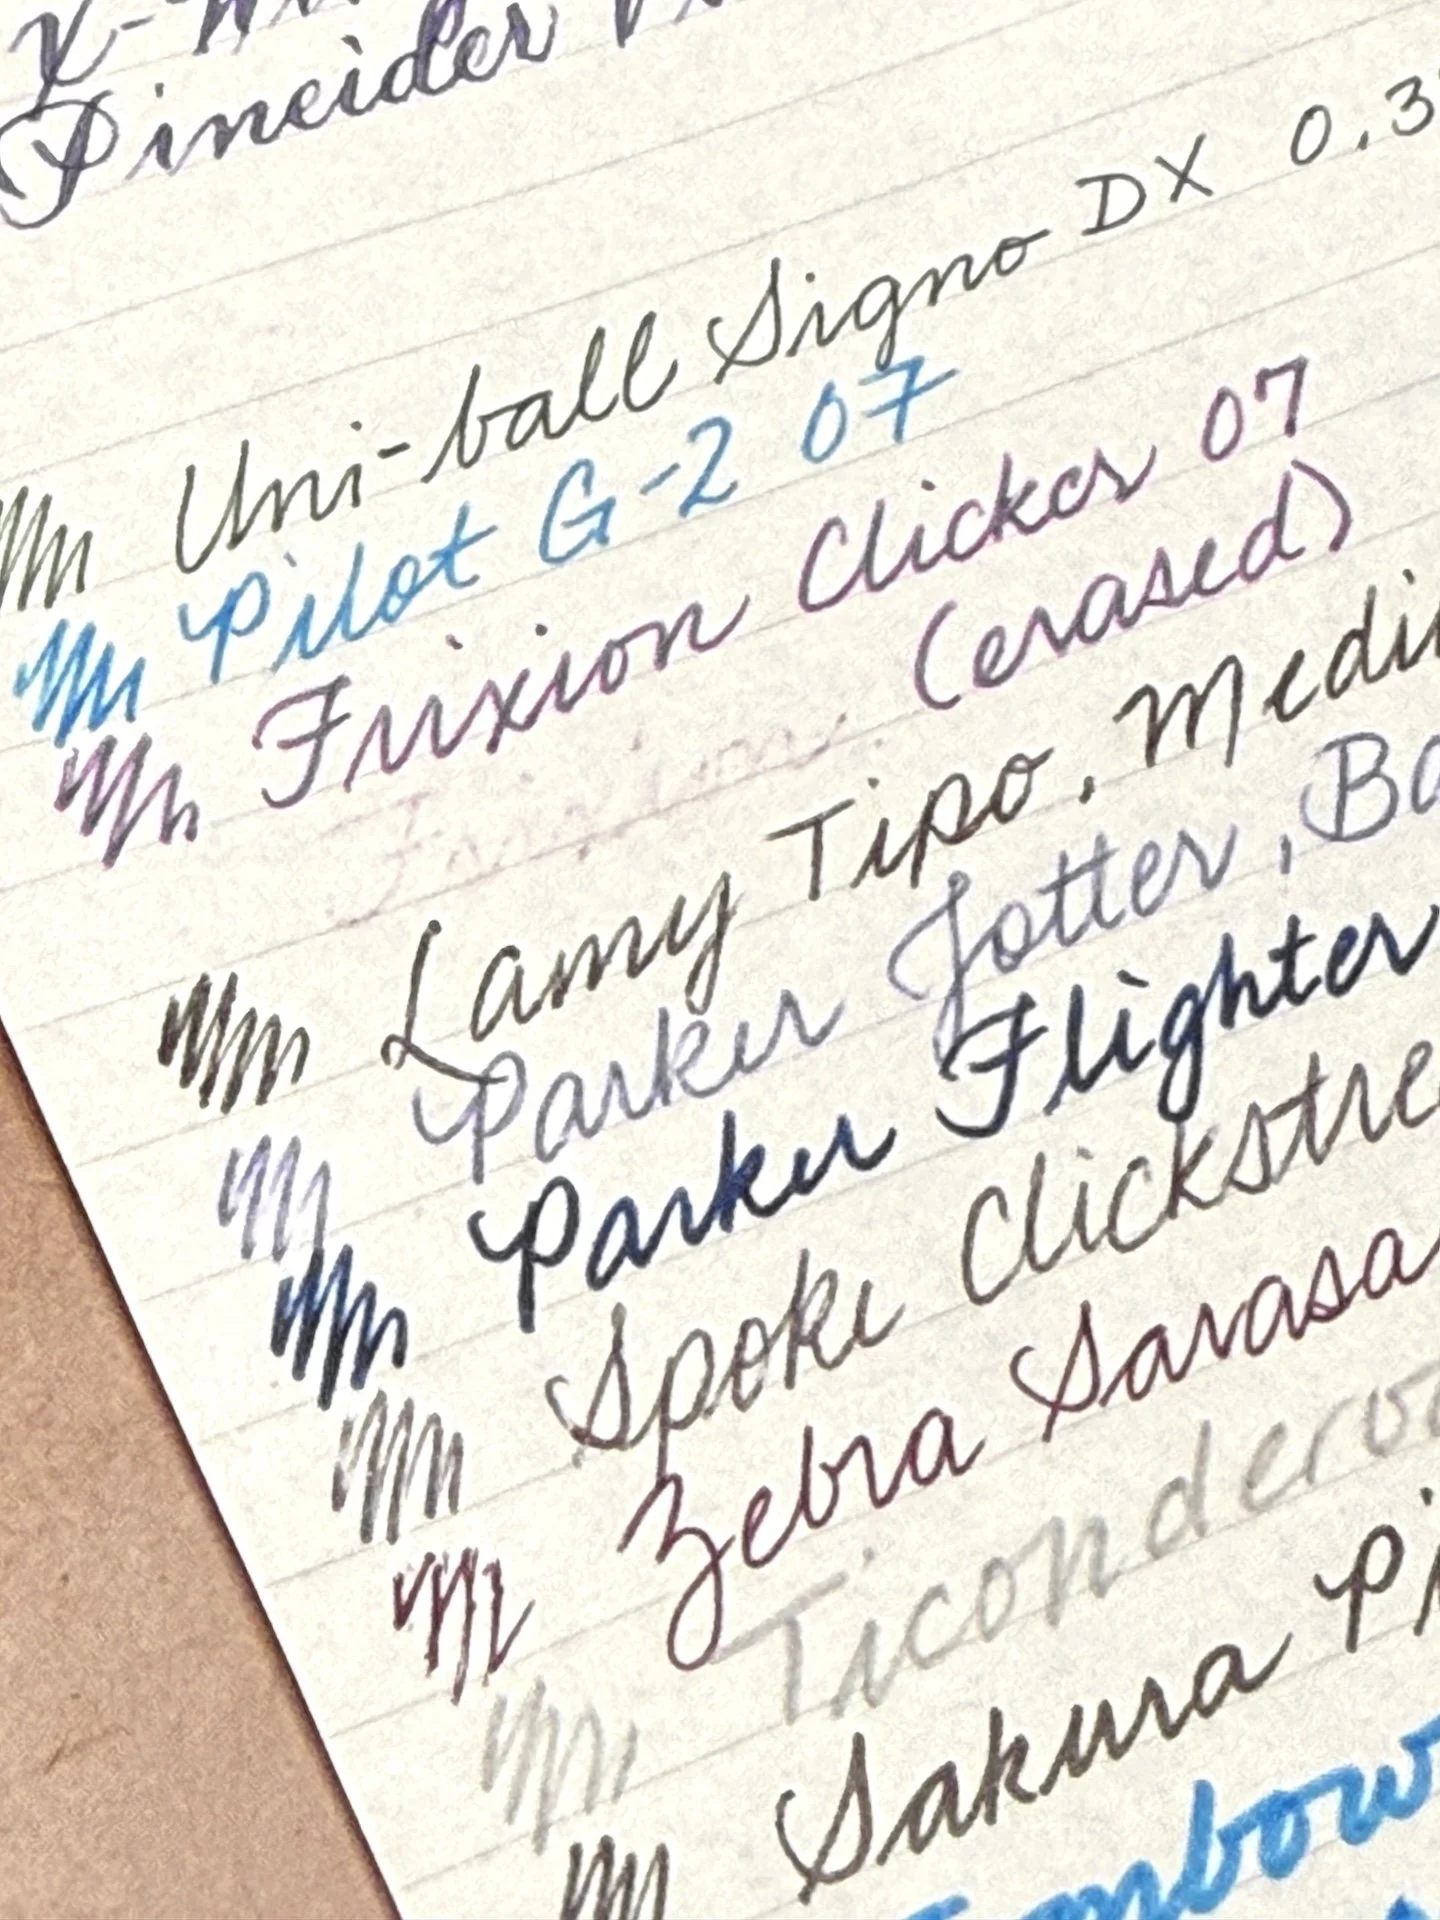 Pineider
Uni-ball Signo DX 0.3
Pilot G-2 07
Frixion Clicker 07
(erased)
Lamy Tipo, Medi
Parker Jotter, Ba
Parker Flighter
Spoke Clickstre
Zebra Sarasa
Ticondero
Sakura Pi
mbow